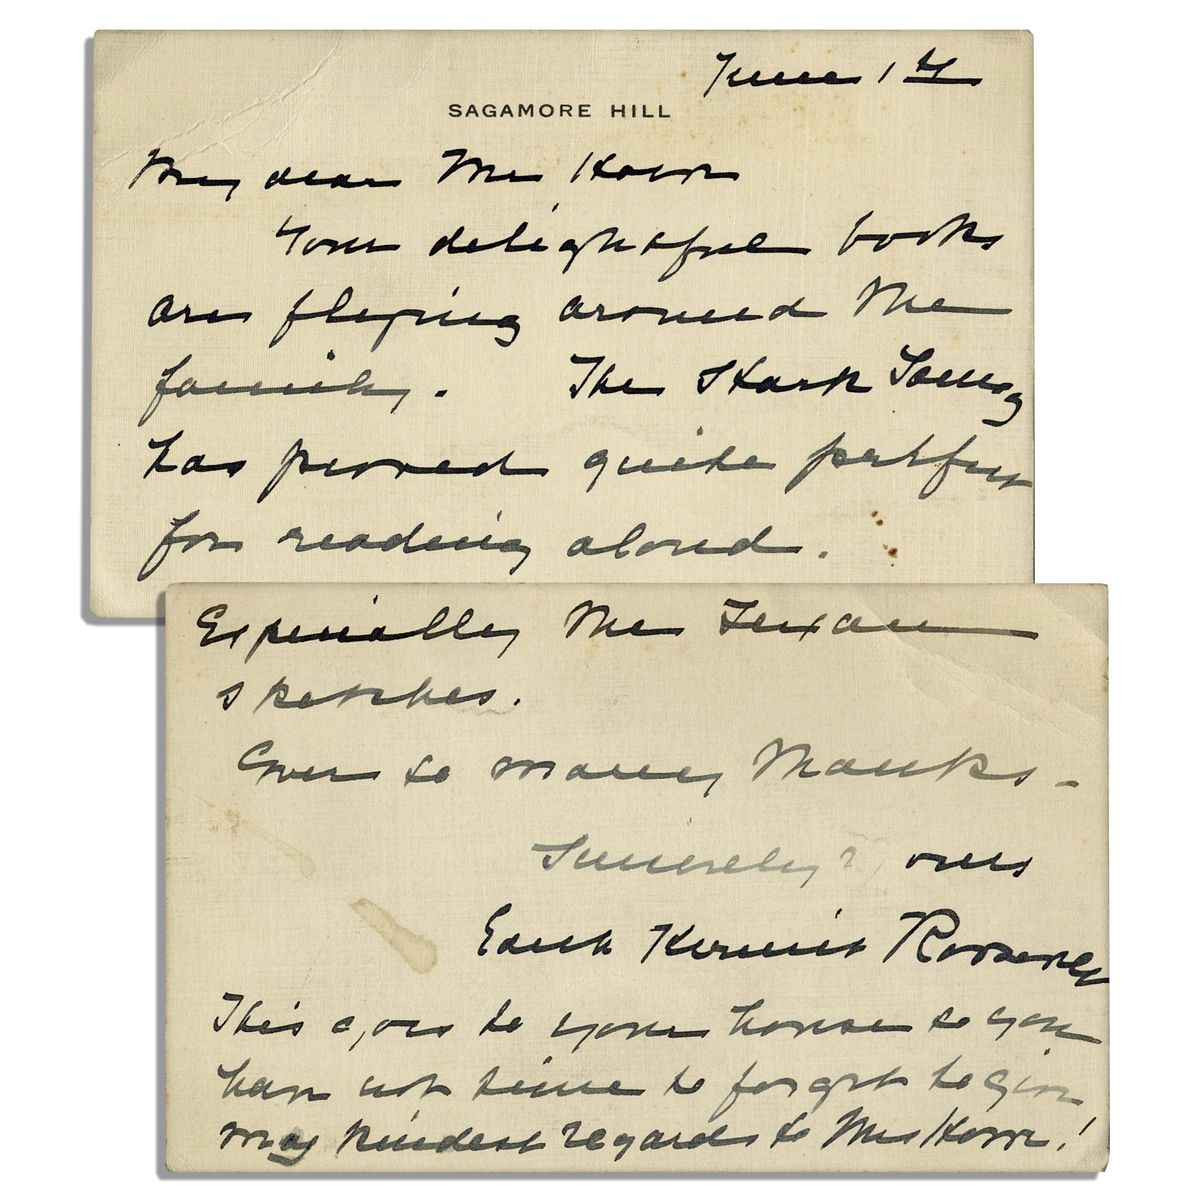 June 1st
SAGAMORE HILL
My dear Mr Howe
Your delightful books
are flying around the
family. The Stark Young
has proved quite perfect
for reading aloud.
Especially the Texan
sketches.
Ever so many thanks -
Sincerely yours
Edith Kermit Roosevelt
This goes to your house so you
have not time to forget to give
my kindest regards to Mrs Howe!